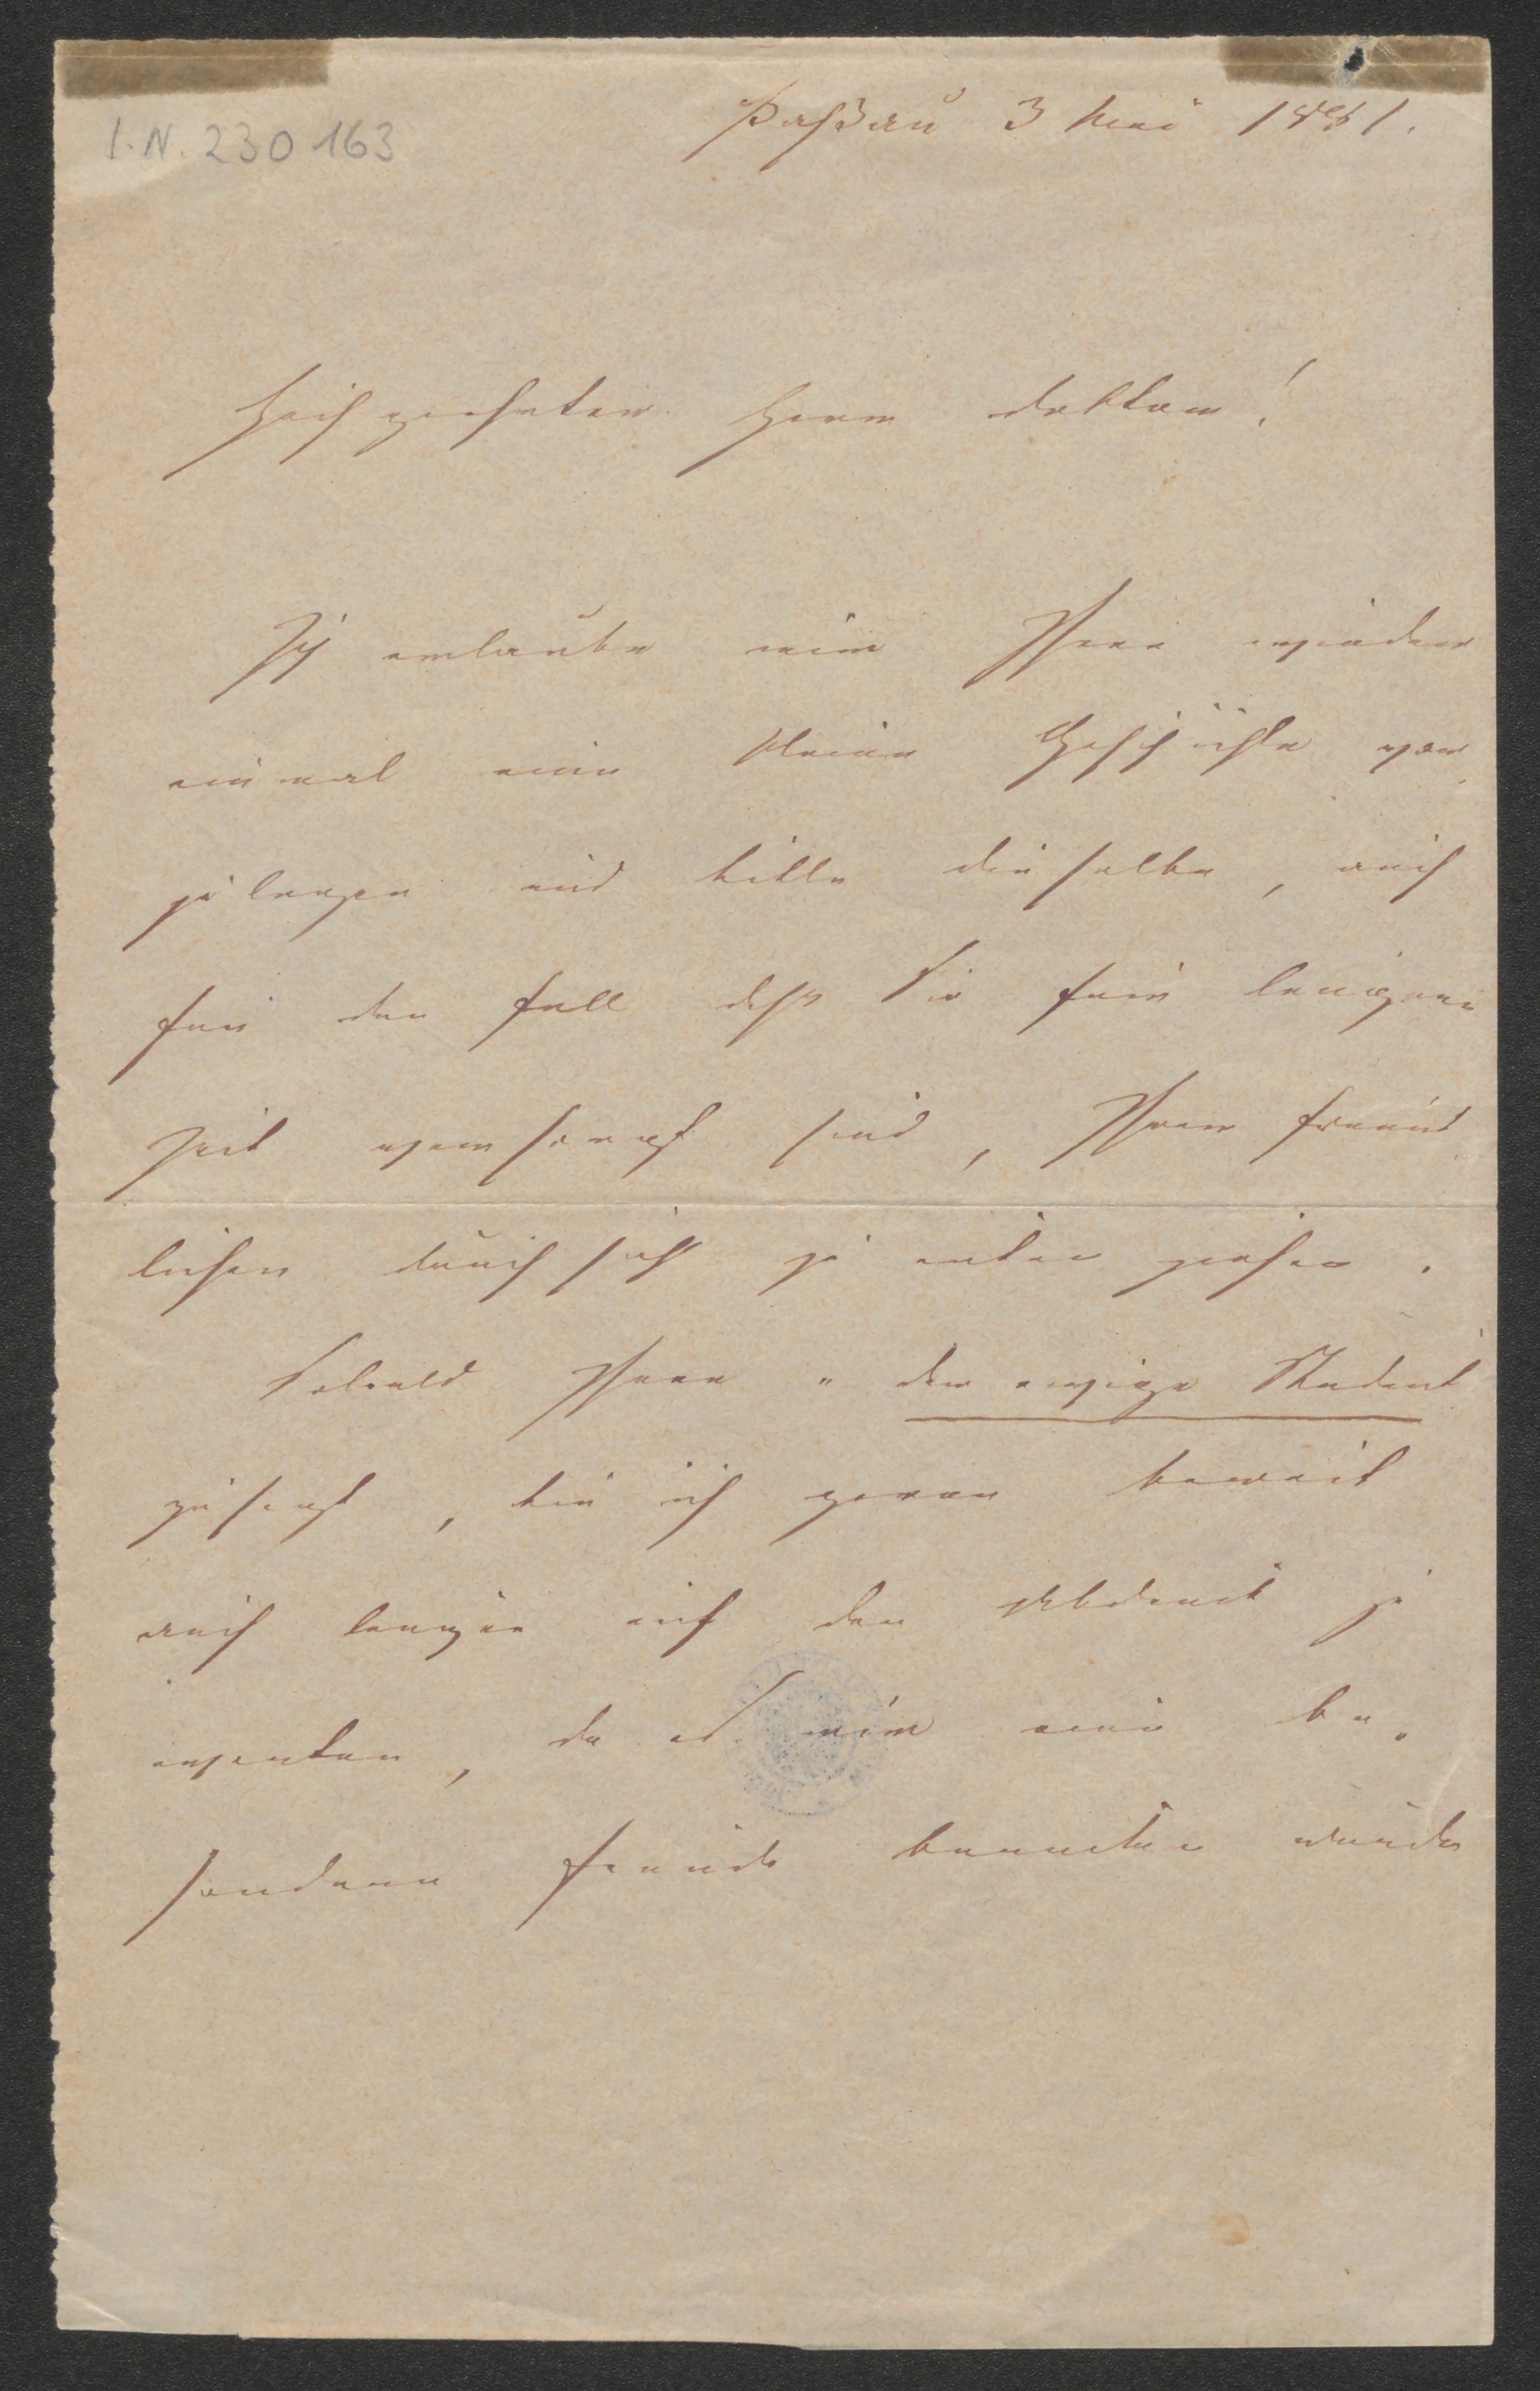 I.N. 230163
Paßau 3 Mai 1881.
Hochgeehrter Herr Doktor!
Ich erlaube mir Ihnen wieder
einmal eine kleine Geschichte vor
zulegen und bitte dieselbe, auch
für den Fall daß Sie für längere
Zeit versorgt sind, Ihrer freund
lichen Durchsicht zu unterziehen.
Sobald Ihnen " der ewige Student
zusagt, bin ich gerne bereit
auch länger auf den Abdruck zu
warten, da es mir eine be„
sondere Freude bereiten würde